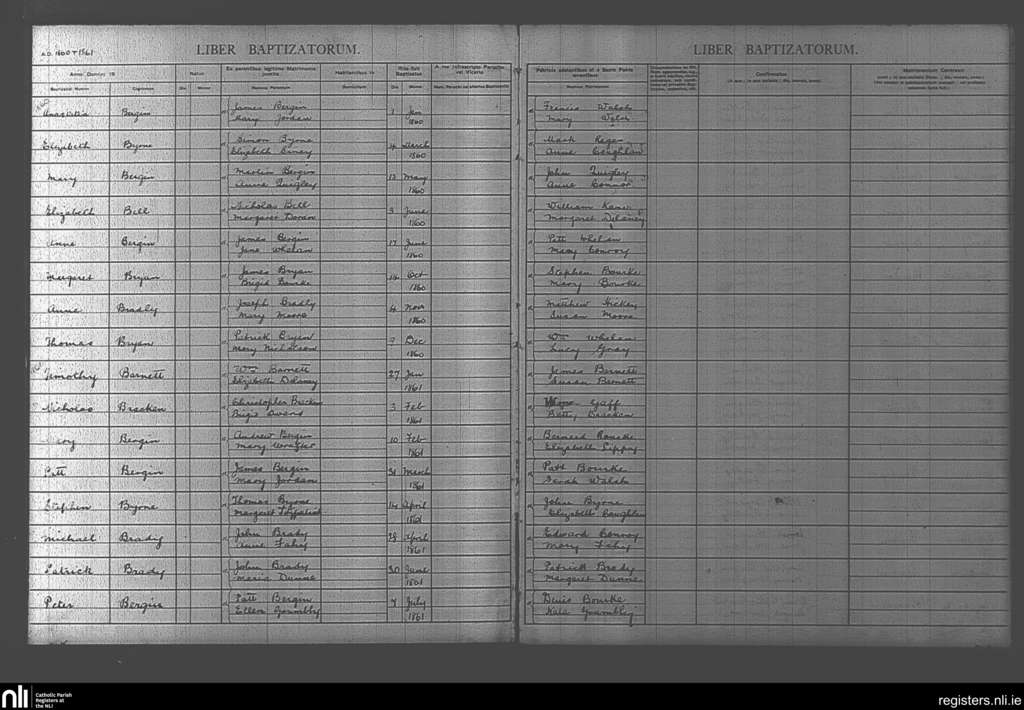 A.D. 1860 + 1861
LIBER BAPTIZATORUM. LIBER BAPTIZATORUM.
Anno Domini 18 Natus Ex parentibus legitimo Matrimonio junctis Habitantibus in Rite fuit Baptizatus A me infrascripto Parocho vel Vicario Patrinis adstantibus et a Sacro Fonte levantibus Confirmatus Matrimonium Contraxit
Cognomen Die Mense Nomina Parentum Die Mense Nomina Patrinorum
Bergin James Bergin Mary Jordan 1 Jan 1860 Francis Walsh Mary Welsh
Elizabeth Byrne Simon Byrne Elizabeth 4 March 1860 Mark Anne
Mary Bergin Martin Bergin Anne Quigley 13 May 1860 John Quigley Anne Connor
Elizabeth Bell Nicholas Bell Margaret Doran 3 June 1860 William Margaret Delaney
Anne Bergin James Bergin Jane Whelan 17 June 1860 Patt Whelan Mary Conroy
Margaret Bryan James Bryan Brigid Bourke 14 Oct 1860 Stephen Bourke Mary Bourke
Anne Bradly Joseph Bradly Mary Moore 4 Nov 1860 Matthew Hickey Susan Moore
Thomas Bryan Patrick Bryan Mary Nicholson 9 Dec 1860 Wm Whelan Lucy Gray
Timothy Barnett Wm Barnett Elizabeth Delaney 27 Jan 1861 James Barnett Susan Barnett
Nicholas Bracken Christopher Bracken Brigid Owens 3 Feb 1861 Gaff Betty Bracken
Mary Bergin Andrew Bergin Mary 10 Feb 1861 Bernard Rourke Elizabeth Tippy
Patt Bergin James Bergin Mary Jordan 31 March 1861 Patt Bourke Sarah Walsh
Stephen Byrne Thomas Byrne Margaret Fitzpatrick 14 April 1861 John Byrne Elizabeth
Michael Brady John Brady Anne Fahy 28 April 1861 Edward Conroy Mary Fahy
Patrick Brady John Brady Maria Dunne 30 June 1861 Patrick Brady Margaret Dunne
Peter Bergin Patt Bergin Ellen Grumbly 7 July 1861 Denis Bourke Kate Grumbley
nli Catholic Parish Registers at the NLI registers.nli.ie